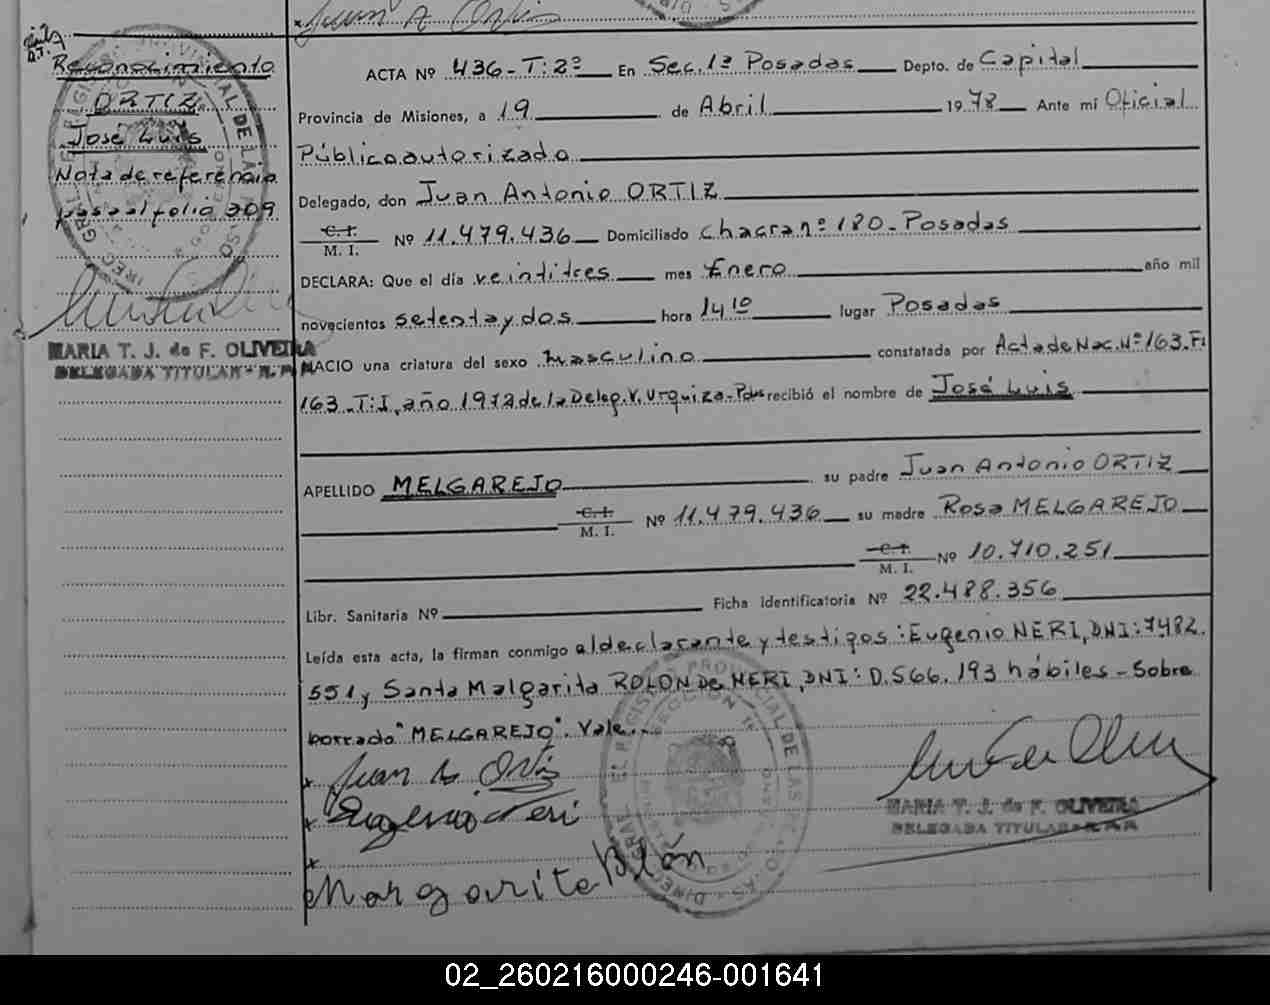 Juan A Ortiz
Reconocimiento
ORTIZ
José Luis
Nota de referencia
pasa al folio 209
MARIA T. J. de F. OLIVEIRA
DELEGADA TITULAR
ACTA Nº 436-T:2º En Sec.1ª Posadas Depto. de Capital
Provincia de Misiones, a 19 de Abril 1978 Ante mi Oficial
Público autorizado
Delegado, don Juan Antonio ORTIZ
C. I.
M. I. Nº 11.479.436 Domiciliado chacra nº 180-Posadas
DECLARA: Que el día veintitres mes Enero año mil
novecientos setenta y dos hora 14 10 lugar Posadas
NACIO una criatura del sexo masculino constatada por Acta de Nac. Nº 163. Fº
163-T:I, año 1972 de la Deleg. V. Urquiza-Pdas recibió el nombre de José Luis
APELLIDO MELGAREJO su padre Juan Antonio ORTIZ
C. I.
M. I. Nº 11.479.436 su madre Rosa MELGAREJO
C. I.
M. I. Nº 10.710.251
Libr. Sanitaria Nº Ficha Identificatoria Nº 22.488.356
Leída esta acta, la firman conmigo al declarante y testigos: Eugenio NERI, DNI: 7482.
551 y Santa Malgarita ROLON De NERI, DNI: D.566.193 hábiles - Sobre
borrado "MELGAREJO". Vale.
Juan A Ortiz
Eugenio Neri
Margarita Rlón
MARIA T. J. de F. OLIVEIRA
DELEGADA TITULAR
02_260216000246-001641